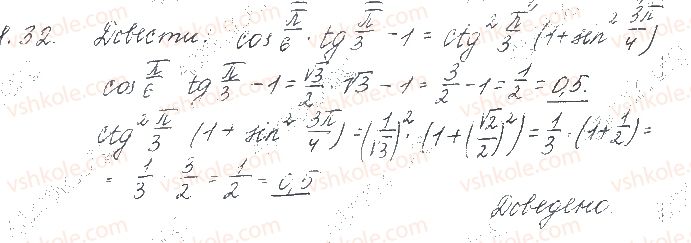 8.32. Довести: cos π/6 · tg π/3 − 1 = ctg² π/3 (1 + sin² 3π/4)
cos π/6 tg π/3 − 1 = √3/2 · √3 − 1 = 3/2 − 1 = 1/2 = 0,5.
ctg² π/3 (1 + sin² 3π/4) = (1/√3)² · (1 + (√2/2)²) = 1/3 · (1 + 1/2) =
= 1/3 · 3/2 = 1/2 = 0,5
Доведено